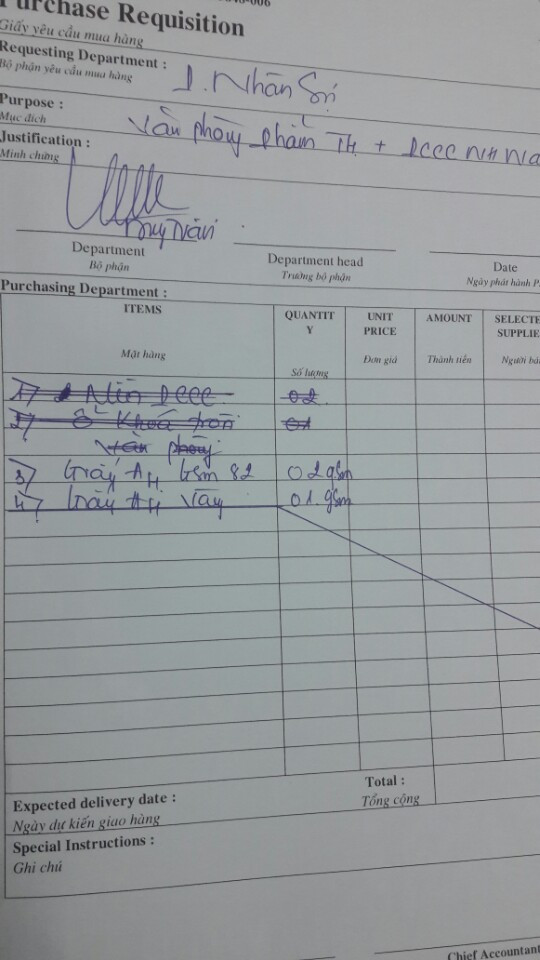 Purchase Requisition
Giấy yêu cầu mua hàng
Requesting Department : P. Nhân Sự
Bộ phận yêu cầu mua hàng
Purpose : Văn phòng phẩm TH + DCCC NH
Mục đích
Justification :
Minh chứng
Department
Bộ phận
Department head
Trưởng bộ phận
Date
Ngày phát hành
Purchasing Department :
ITEMS QUANTITY UNIT PRICE AMOUNT SELECTE SUPPLIE
Mặt hàng Số lượng Đơn giá Thành tiền Người bá
1) DCCC 02
2) Ổ Khoá tròn 01
văn phòng
3) Giấy A4 Gsm 82 02 gsm
4) Giấy A4 01 gsm
Total :
Tổng cộng
Expected delivery date :
Ngày dự kiến giao hàng
Special Instructions :
Ghi chú
Chief Accountant